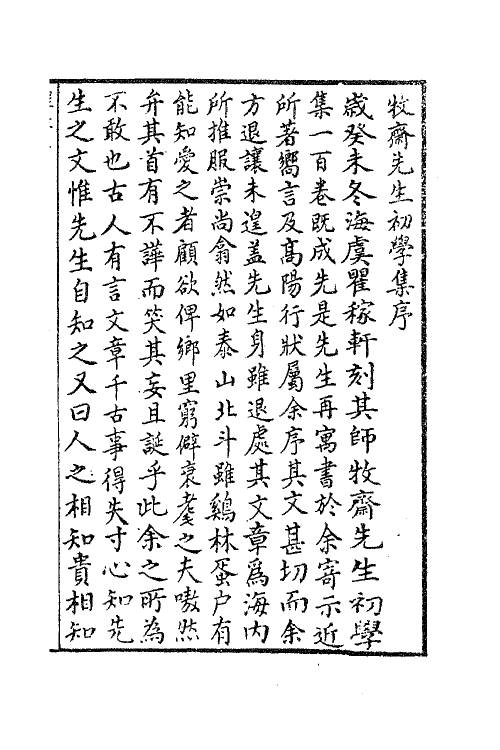 牧齋先生初學集序
歲癸未冬海虞瞿稼軒刻其師牧齋先生初學
集一百卷既成先是先生再寓書於余寄示近
所著嚮言及高陽行狀屬余序其文甚切而余
方退讓未遑蓋先生身雖退處其文章爲海内
所推服崇尚翕然如泰山北斗雖鷄林蛋户有
能知愛之者顧欲俾鄉里窮僻衰耄之夫嗷然
弁其首有不譁而笑其妄且誕乎此余之所為
不敢也古人有言文章千古事得失寸心知先
生之文惟先生自知之又曰人之相知貴相知